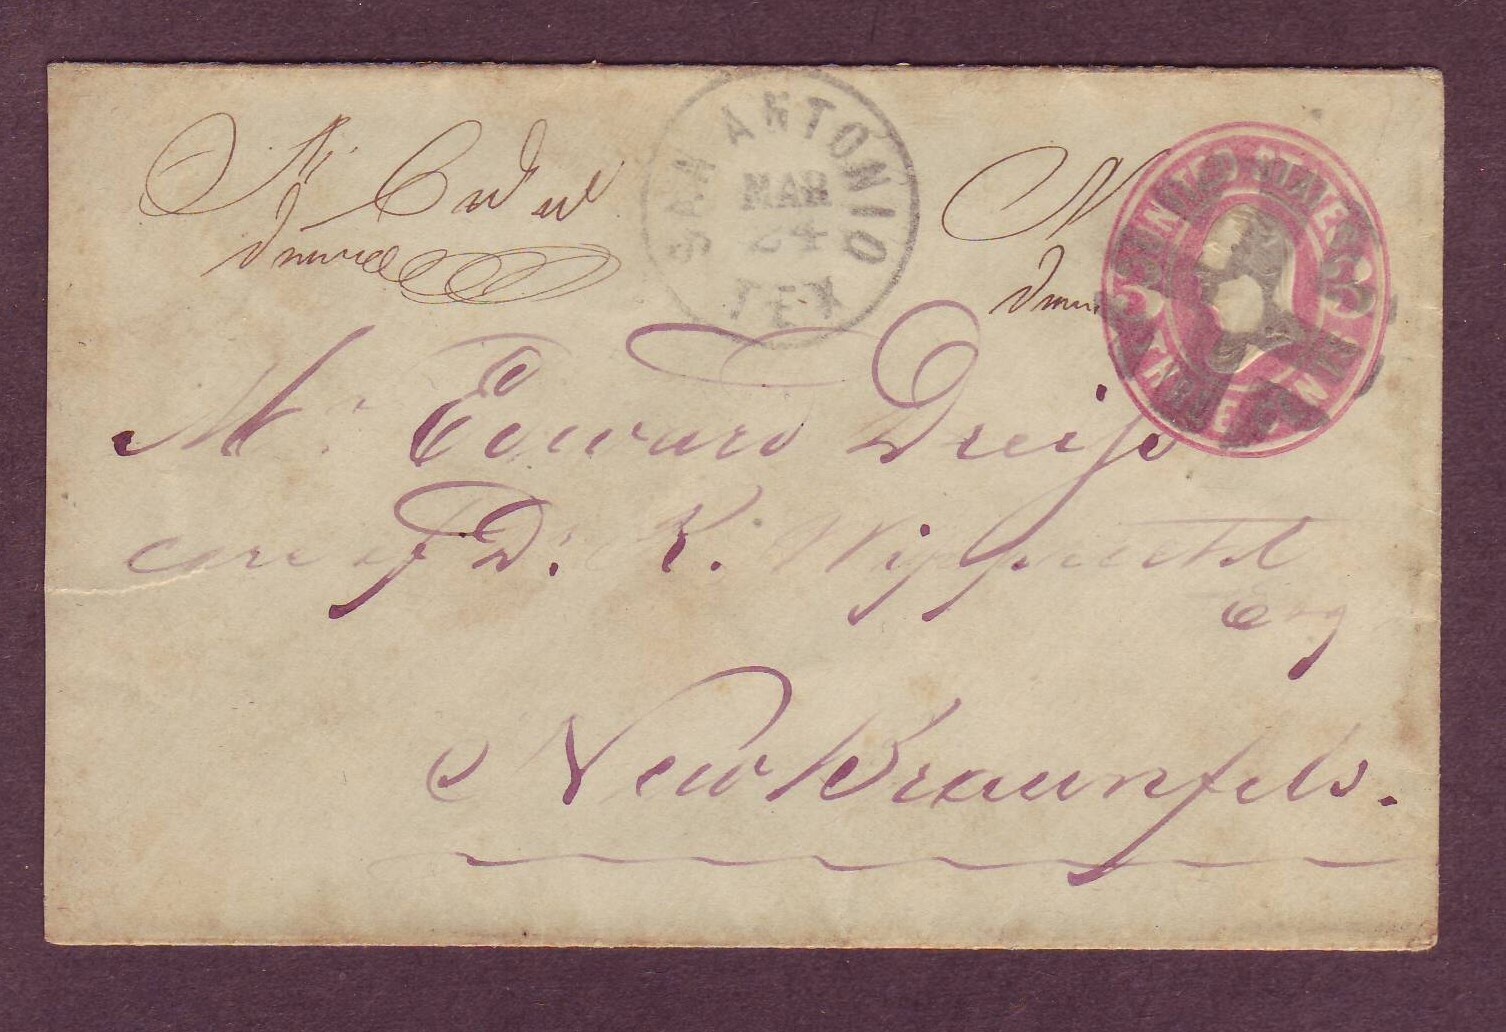 SAN ANTONIO
MAR
24
TEX
UNITED STATES
3 3
THREE CENTS
Mr. Edward Dreiss
care of Dr. K. Wipprecht
Esq
New Braunfels.